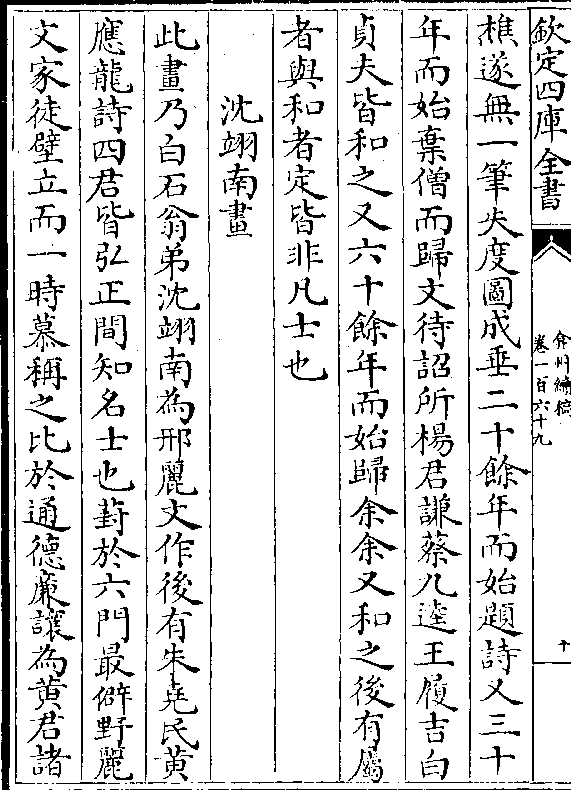 欽定四庫全書
弇州續稿
卷一百六十九
十
樵遂無一筆失度圖成垂二十餘年而始題詩又三十
年而始棄僧而歸文待詔所楊君謙蔡九逵王履吉白
貞夫皆和之又六十餘年而始歸余余又和之後有屬
者與和者定皆非凡士也
沈翊南畫
此畫乃白石翁弟沈翊南為邢麗文作後有朱堯民黄
應龍詩四君皆弘正間知名士也葑於六門最僻野麗
文家徒壁立而一時慕稱之比於通德廉讓為黄君諸